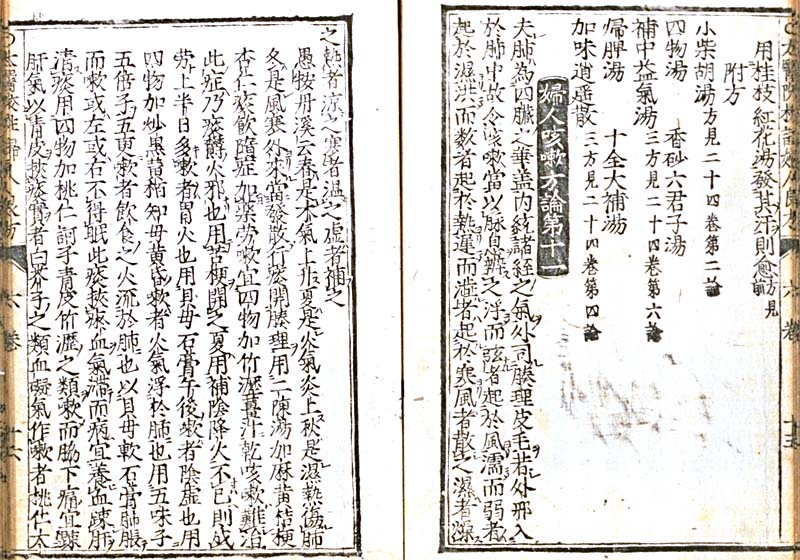 用桂枝紅花湯發其汗則愈方見前
附方
小柴胡湯方見二十四卷第二論
四物湯　香砂六君子湯
補中益氣湯三方見二十四卷第六論
歸脾湯　十全大補湯
加味逍遙散三方見二十四卷第四論
婦人咳嗽方論第十一
夫肺為四臟之華盖内統諸經之氣外司腠理皮毛若外邪入
於肺中故令咳嗽當以脉息辨之浮而弦者起於風濡而弱者
起於濕洪而數者起於熱遲而澁者起於寒風者散之濕者燥
之熱者涼之寒者温之虚者補之
愚按丹溪云春是木氣上升夏是火氣炎上秋是濕熱傷肺
冬是風寒外來當發散行痰開腠理用二陳湯加麻黄桔梗
杏仁痰飲隨症加藥勞嗽宜四物加竹瀝薑汁乾咳嗽難治
此症乃痰鬱火邪也用苦梗開之夏用補陰降火不已則成
勞上半日多嗽者胃火也用貝母石膏午後嗽者陰虚也用
四物加炒黒黄栢知母黄昏嗽者火氣浮於肺也用五味子
五倍子五更嗽者飲食之火流於肺也以貝母軟石膏肺脹
而嗽或左或右不得眠此痰挾瘀血氣滯而痛宜養血疎肝
清痰用四物加桃仁訶子青皮竹瀝之類嗽而脇下痛宜疎
肝氣以青皮挾痰實者白芥子之類血礙氣作嗽者桃仁大
六卷
十六
六卷